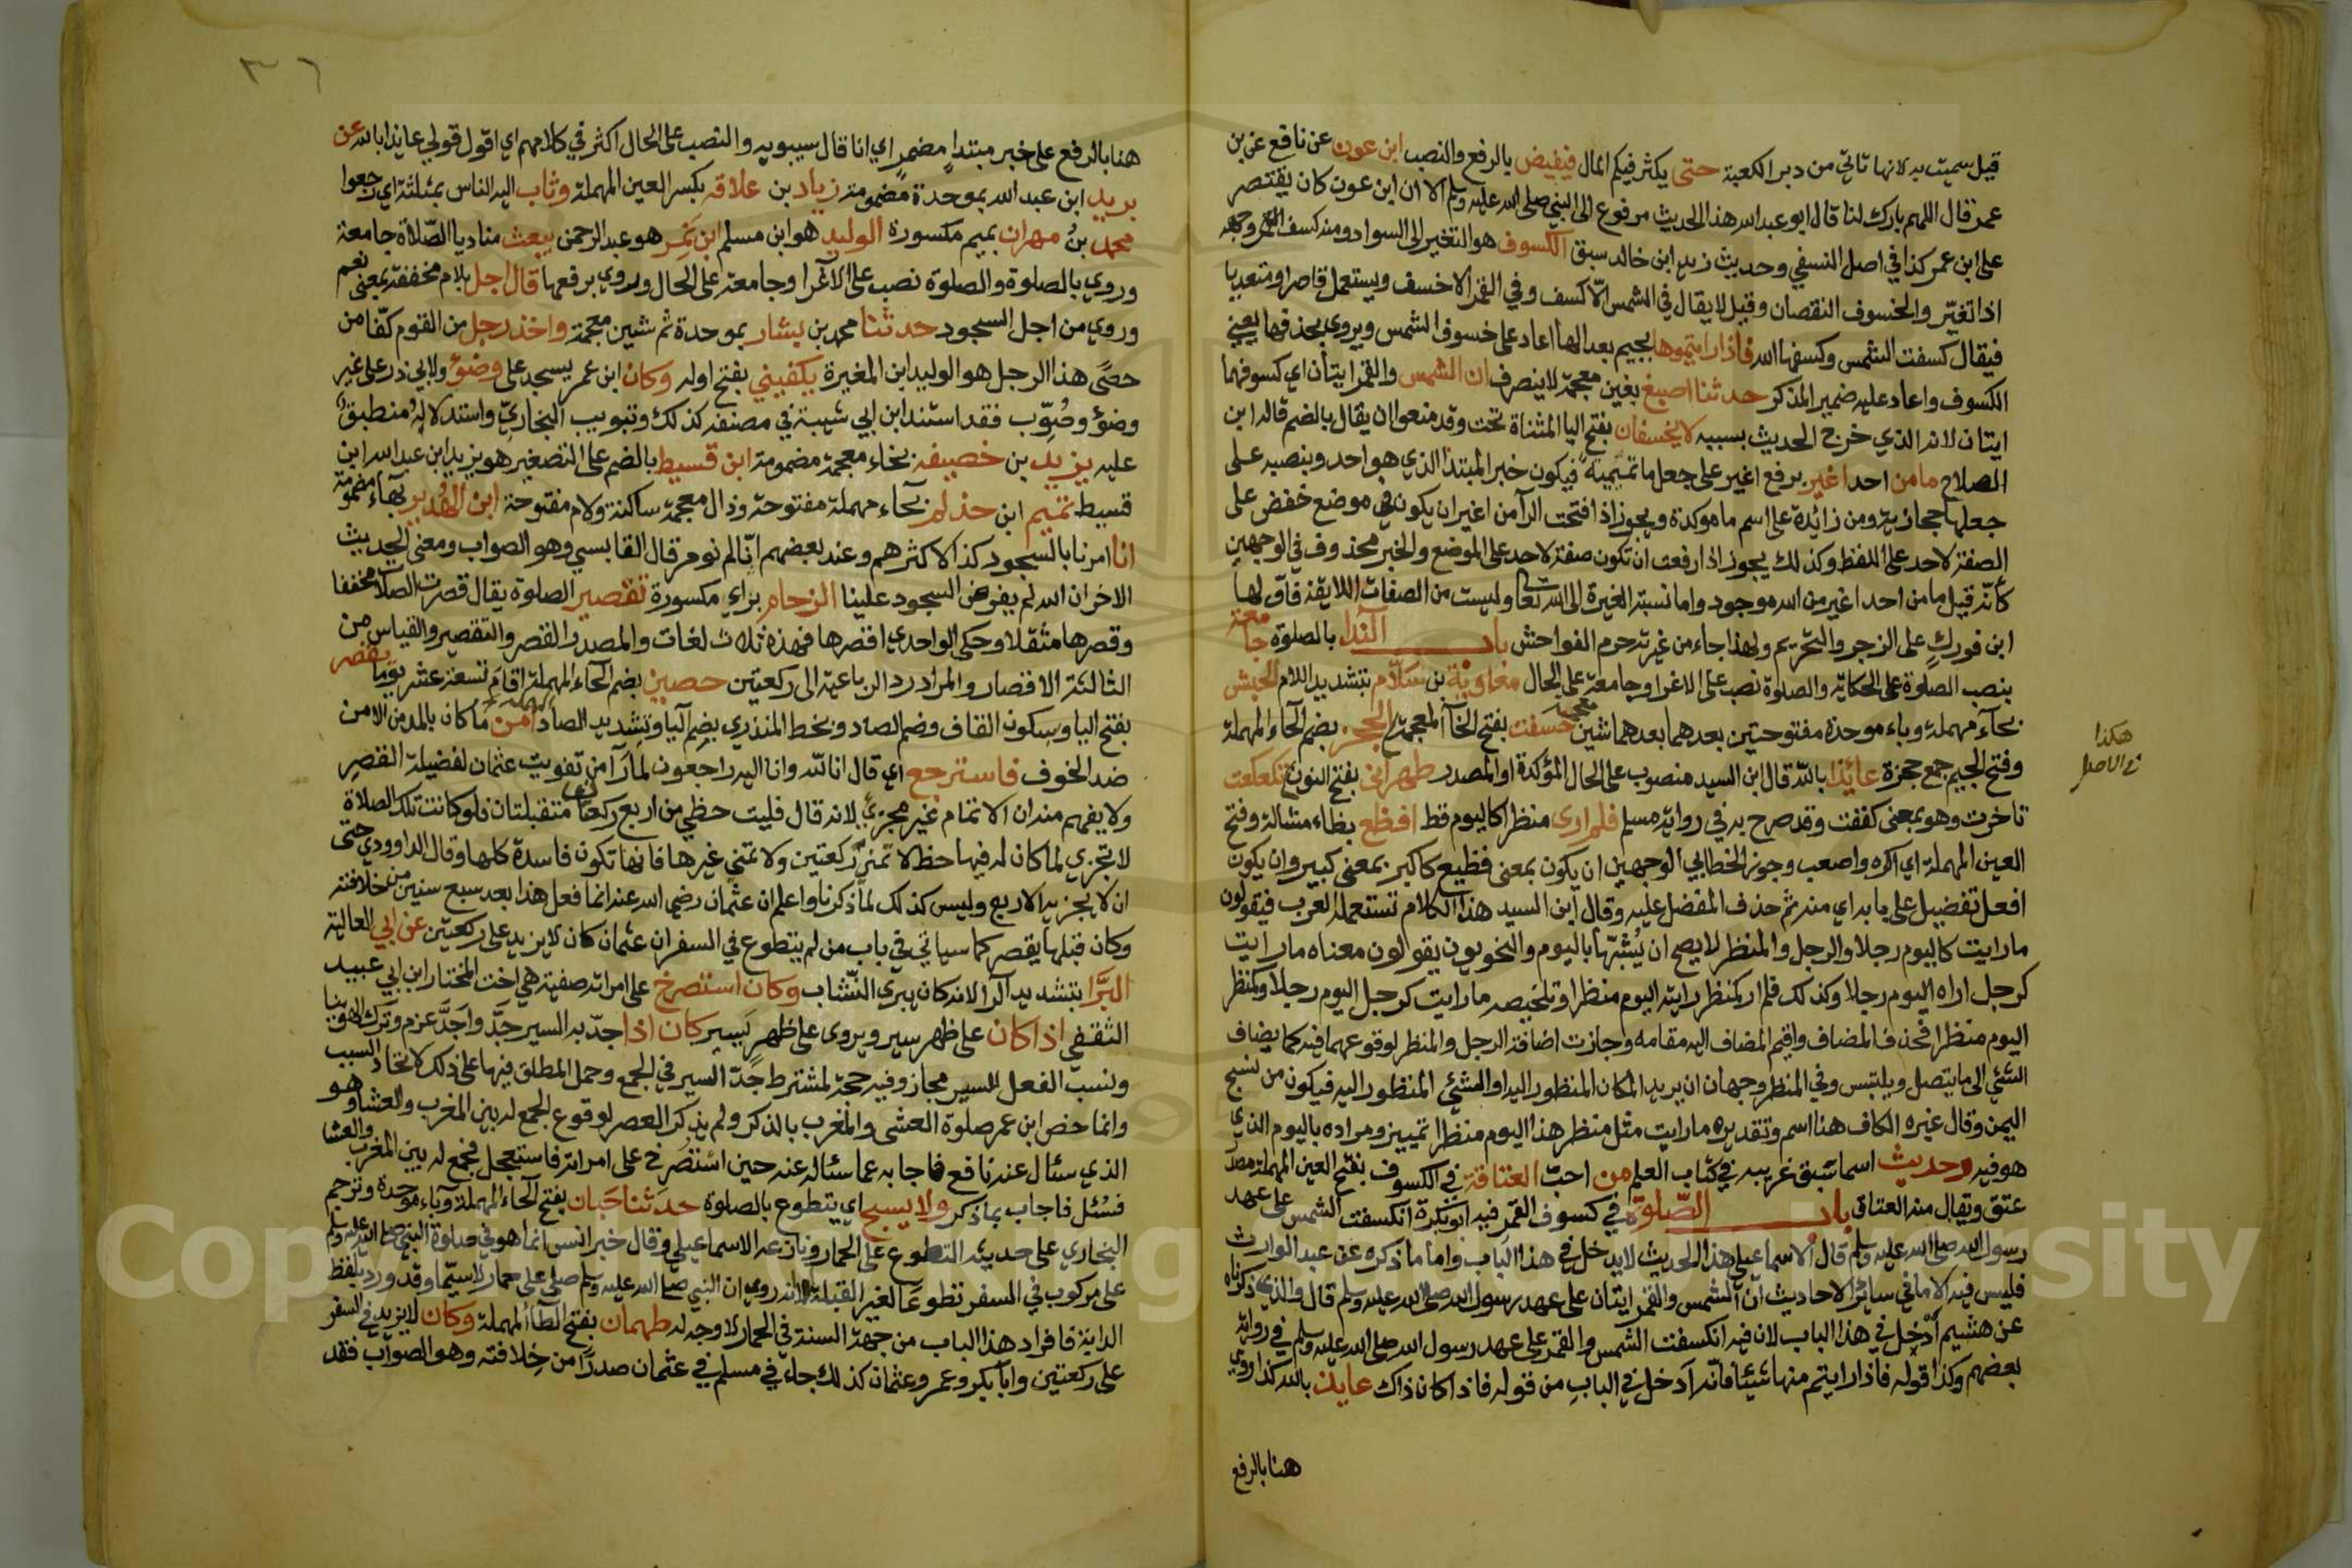 قيل سميت به لانها تاتي من دبر الكعبة حتى يكثر فيكم المال فيفيض بالرفع والنصب ابن عون عن نافع عن بن
عمر قال اللهم بارك لنا قال ابو عبد الله هذا الحديث مرفوع الى النبي صلى الله عليه وسلم الا ان ابن عون كان يقتصر
على ابن عمر كذا في اصل النسفي وحديث زيد ابن خالد سبق الكسوف هو التغير الى السواد ومنه كسف وجهه
اذا تغيّر والخسوف النقصان وقيل لا يقال في الشمس الّا كسف وفي القمر الا خسف ويستعمل قاصرا ومتعديا
فيقال كسفت الشمس وكسفها الله فاذا رايتموها بالجيم بعد الها اعاد على خسوف الشمس ويروى بحذفها يعني
الكسوف واعاد عليه ضمير المذكر حدثنا اصبغ بغين معجمة لا ينصرف ان الشمس والقمر ايتان اي كسوفهما
ايتان لانه الذي خرج الحديث بسببه لا يخسفان بفتح اليا المثناة تحت وقد منعوا ان يقال بالضم قاله ابن
الصلاح ما من احد اغير برفع اغير على جعل ما تميمية فيكون خبر المبتدا الذي هو احد وبنصبه على
جعلها حجازية ومن زائدة على اسم ما موكدة ويجوز اذا فتحت الرآ من اغير ان يكون في موضع خفض على
الصفة لاحد على اللفظ وكذلك يجوز اذا رفعت ان تكون صفة لاحد على الموضع والخبر محذوف في الوجهين
كأنّه قيل ما من احد اغير من الله موجود واما نسبة الغيرة الى الله تعا وليست من الصفات اللايقة فاوّلها
ابن فورك على الزجر والتحريم ولهذا جاء من غيرته حرم الفواحش باب الندا بالصلوة جامعة
بنصب الصلوة على الحكاية والصلوة نصب على الاغرا وجامعة على الحال معاوية بن سلّام بتشديد اللام الحبشي
بحآء مهملة وباء موحدة مفتوحتين بعدهما شين معجمة خسفت بفتح الخآ المعجمة الحجز بضم الحآء المهملة
وفتح الجيم جمع حجزة عائذا بالله قال ابن السيد منصوب على الحال المؤكدة او المصدر ظهراني بفتح النون تكعكعت
تاخرت وهو بمعنى كففت وقد صرح به في رواية مسلم فلم ارى منظرا كاليوم قط افظع بظاء مشالة وفتح
العين المهملة اي اكره واصعب وجوز الخطابي الوجهين ان يكون بمعنى فظيع كاكبر بمعنى كبير وان يكون
افعل تفضيل على بابه اي منه ثم حذف المفضل عليه وقال ابن السيد هذا الكلام تستعمله العرب فيقولون
ما رايت كاليوم رجلا والرجل والمنظر لا يصح ان يُشبّها باليوم والنحويون يقولون معناه ما رايت
كرجل اراه اليوم رجلا وكذلك فلم ار كمنظر رايته اليوم منظرا وتلخيصه ما رايت كرجل اليوم رجلا وكمنظر
اليوم منظرا فحذف المضاف واقيم المضاف اليه مقامه وجازت اضافة الرجل والمنظر لوقوعهما فيه كما يضاف
الشئي الى ما يتصل ويلتبس وفي المنظر وجهان ان يريد المكان المنظور اليه او الشئي المنظور اليه فيكون من نسج
اليمن وقال غيره الكاف هنا اسم وتقديره ما رايت مثل منظر هذا اليوم منظرا تمييز ومراده باليوم الذي
هو فيه وحديث اسما سبق غريبه في كتاب العلم من احبّ العتاقة في الكسوف بفتح العين المهملة مصدر
عتق ويقال منه العتاق باب الصّلوة في كسوف القمر فيه ابو بكرة انكسفت الشمس على عهد
رسول الله صلى الله عليه وسلم قال الاسماعيلي هذا الحديث لا يدخل في هذا الباب واما ما ذكره عن عبد الوارث
فليس فيه الا ما في سائر الاحاديث ان الشمس والقمر ايتان على عهد رسول الله صلى الله عليه وسلم قال والذي ذكرناه
عن هشيم أدْخل في هذا الباب لان فيه انكسفت الشمس والقمر على عهد رسول الله صلى الله عليه وسلم في رواية
بعضهم وكذا قوله فاذا رايتم منها شيئا فانه ادخل في الباب من قوله فاذا كان ذاك عايذ بالله كذا روي
هنا بالرفع
هكذا
في الاصل
٣٦
هنا بالرفع على خبر مبتدا مضمر اي انا قال سيبويه والنصب على الحال اكثر في كلامهم اي اقول قولي عايذا بالله عن
بريد ابن عبد الله بموحدة مضمومة زياد بن علاقه بكسر العين المهملة وثاب اليه الناس بمثلثة اي رجعوا
محمد بنُ مهران بميم مكسورة الوليد هو ابن مسلم ابن نمر هو عبد الرحمن يبعث مناديا الصّلاة جامعة
وروي بالصلوة والصلوة نصب على الاغرا وجامعة على الحال وروي برفعها قال اجل بلام مخففة بمعنى نعم
وروي من اجل السجود حدثنا محمد بن بشار بموحدة ثم شين معجمة واخذ رجل من القوم كفّا من
حصًى هذا الرجل هو الوليد ابن المغيرة يكفيني بفتح اوله وكان ابن عمر يسجد على وضؤ ولابي ذر على غير
وضؤ وصُوِّب فقد اسنده ابن ابي شيبة في مصنفه كذلك وتبويب البخاري واستدلاله منطبق
عليه يزيد بن خصيفه بخاء معجمة مضمومة ابن قسيط بالضم على التصغير هو يزيد ابن عبد الله ابن
قسيط تميم ابن حذلم بحاء مهملة مفتوحة وذال معجمة ساكنة ولام مفتوحة ابن الهُدير بهاء مضمومة
انا امرنا بالسجود كذا لاكثرهم وعند بعضهم انّا لم نومر قال القابسي وهو الصواب ومعنى الحديث
الاخر ان الله لم يفرض السجود علينا الزحام براء مكسورة تقصير الصلوة يقال قصرت الصلاة مخففا
وقصرها مثقلا وحكى الواحدي اقصرها فهذه ثلاث لغات والمصدر القصر والتقصير والقياس من
الثالثة الاقصار والمراد رد الرباعية الى ركعتين حصين بضم الحآء المهملة اقام تسعة عشر يوما يقصر
بفتح اليا وسكون القاف وضم الصاد وبخط المنذري بضم اليا وتشديد الصاد امن ما كان بالمد من الامن
ضد الخوف فاسترجع اي قال انا لله وانا اليه راجعون لما رآ من تفويت عثمان لفضيلة القصر
ولا يفهم منه ان الاتمام غير مجزئ لانه قال فليت حظي من اربع ركعات متقبلتان فلو كانت تلك الصلاة
لا تجزي لما كان له فيها حظ لا تمنى ركعتين ولا تمنى غيرها فانها تكون فاسدة كلها وقال الداوودي حتى
ان لا يجزيه الاربع وليس كذلك لما ذكرنا واعلم ان عثمان رضي الله عنه انما فعل هذا بعد سبع سنين من خلافته
وكان قبلها يقصر كما سياتي في باب من لم يتطوع في السفر ان عثمان كان لا يزيد على ركعتين عن ابي العالية
البَرَّا بتشديد الرا لانه كان يبري النّشّاب وكان استصرخ على امراته صفية هي اخت المختار ابن ابي عبيد
الثقفي اذا كان على ظهر سير ويروى على ظهرٍ يَسير كان اذا جدّ به السير جَدَّ واَجَدَّ عزم وترك الهوينا
ونسب الفعل للسير مجاز وفيه حجة لمشترط جدّ السير في الجمع وحمل المطلق فيها على ذلك لاتحاد السبب
وانما خص ابن عمر صلوة العشى والمغرب بالذكر ولم يذكر العصر لوقوع الجمع له بين المغرب والعشا وهو
الذي سئال عنه نافع فاجابه عما سئاله عنه حين استُصرخ على امراته فاستعجل فجمع له بين المغرب والعشا
فسُئل فاجاب بما ذكر ولا يسبح اي يتطوع بالصلوة حدثنا حَبان بفتح الحآء المهملة وبآء موحدة وترجم
البخاري على حديثه التطوع على الحمار ونازعه الاسماعيلي وقال خبر انس انما هو في صلوة النبي صلى الله عليه وسلم
على مركوب في السفر تطوعا لغير القبلة لانه روي ان النبي صلى الله عليه وسلم صلى على حمار لا سيّما وقد ورد بلفظ
الدابة فافراد هذا الباب من جهة السنة في الحمار لا وجه له طهمان بفتح الطآ المهملة وكان لا يزيد في السفر
على ركعتين وابا بكر وعمر وعثمان كذلك جاء في مسلم في عثمان صدرًا من خلافته وهو الصواب فقد
Copyright © King Saud University